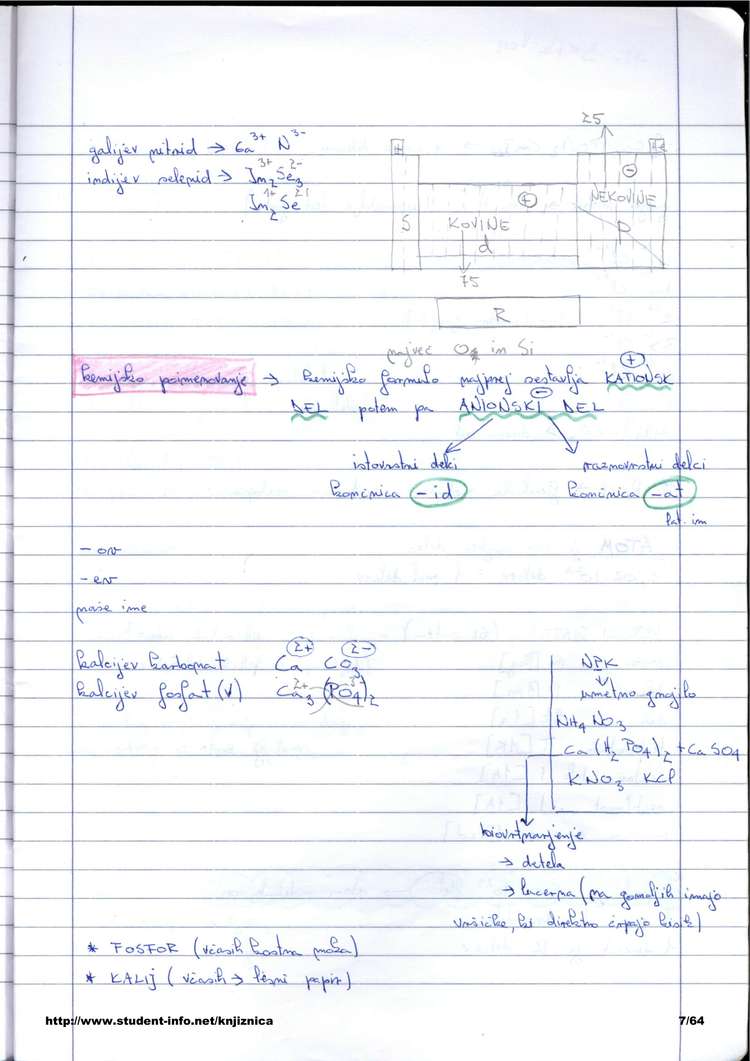 galijev nitrid → Ga³⁺ N³⁻
indijev selenid → In₂³⁺Se₃²⁻
In₂¹⁺Se²⁻
25
H
He
⊖
NEKOVINE
⊕
S
KOVINE
P
d
75
R
največ O₂ in Si
kemijsko poimenovanje → kemijsko formulo najprej sestavlja KATIONSK ⊕
DEL potem pa ANIONSKI ⊖ DEL
istovrstni delci
raznovrstni delci
končnica -id
končnica -at
lat. im
- ov
- ev
naše ime
kalcijev karbonat Ca²⁺ CO₃²⁻
kalcijev fosfat (V) Ca₃²⁺(PO₄)₂³⁻
NPK
↓
umetno gnojilo
NH₄NO₃
Ca(H₂PO₄)₂ + CaSO₄
KNO₃ KCl
biovrtnarjenje
→ detela
→ lucerna (na gomoljih imajo
vršičke, ki direktno črpajo kisik)
* FOSFOR (včasih kostna moka)
* KALIJ (včasih → lesni papir)
http://www.student-info.net/knjiznica
7/64